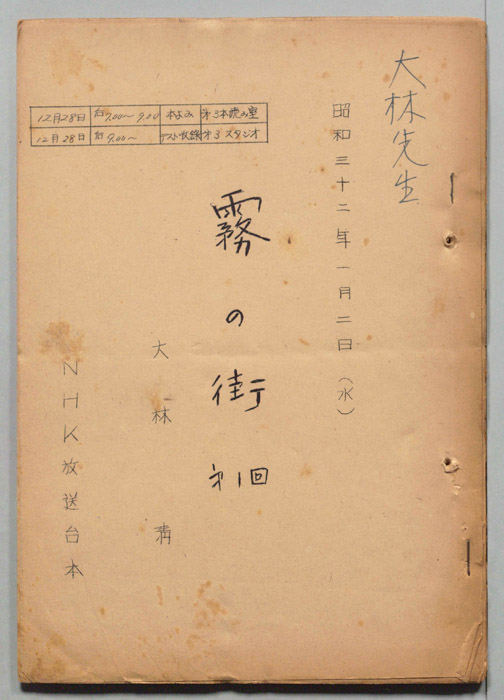 大林先生
昭和三十二年一月二日（水）
12月28日 后7.00〜9.00 本よみ 第3本読み室
12月28日 后9.00〜 テスト収録 第3スタジオ
霧の街 第1回
大林清
NHK放送台本